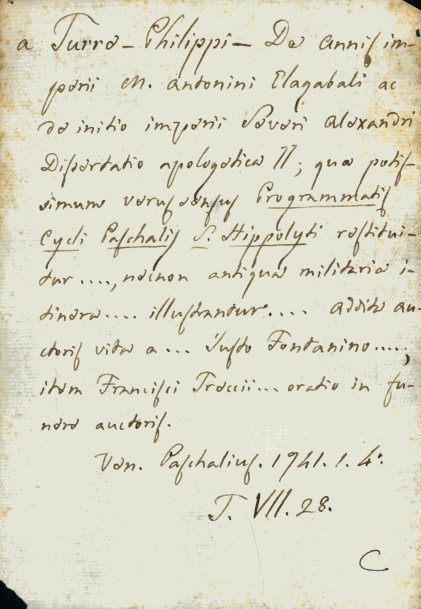 a Turre - Philippi - De annis im-
perii M. Antonini Elagabali ac
de initio imperii Severi Alexandri
Dissertatio apologetica II; qua potis-
simum verus sensus Programmatis
Cycli Paschalis S. Hippolyti restitui-
tur ...., necnon antiqua militaria i-
tinera .... illustrantur .... Addita au-
ctoris vita a ... Justo Fontanino ....,
item Francisci Treccii ... oratio in fu-
nere auctoris.
Ven. Paschalius. 1741. 1. 4°
T. VII. 28.
C